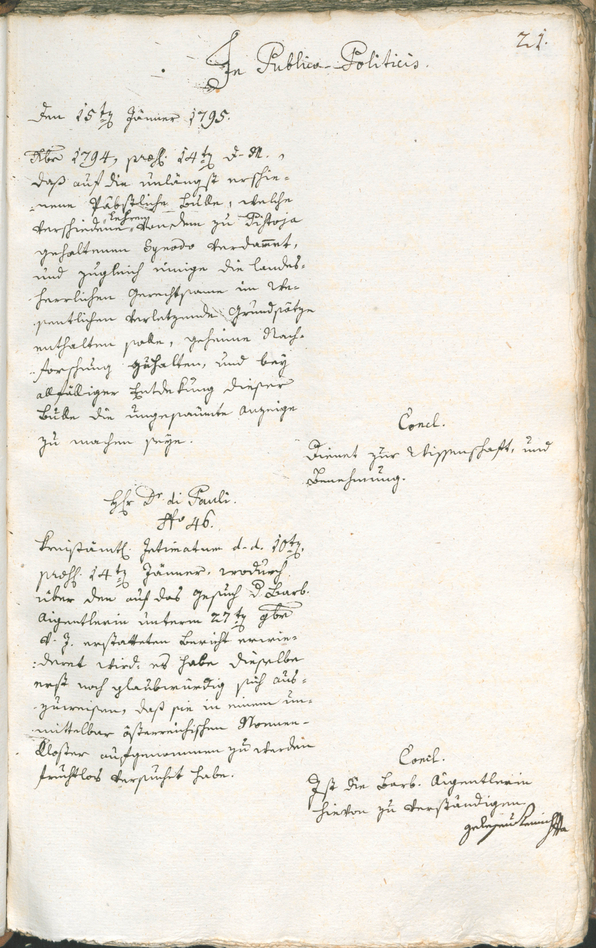 21.
In Publico-Politicis.
Den 15ten Jänner 1795.
Xbr 1794, præs. 14ten d. M.,
daß auf die unlängst erschie-
nene Päbstliche Bulle, welche
verschiedene Lehren von dem zu Pistoja
gehaltenen Synodo verdammt,
und zugleich einige die landes-
herrlichen Gerechtsame im We-
sentlichen verletzende Grundsätze
enthalten solle, geheime Nach-
forschung zuhalten, und bey
allfälliger Entdekung dieser
Bulle die ungesaumte Anzeige
zu machen seye.
Concl.
Dienet zur Wissenschaft, und
Benehmung.
Hhr Dr di Pauli.
No 46.
Kreisämtl. Intimatum d. d. 10ten,
præs. 14ten Jänner, wodurch
über den auf das Gesuch d. Barb.
Aigentlerin unterm 27ten 9bre
v. J. erstatteten Bericht erwie-
dert wird: es habe dieselbe
erst noch glaubwürdig sich aus-
zuweisen, daß sie in einem un-
mittelbar österreichischen Nonnen-
Kloster aufgenommen zu werden
fruchtlos versuchet habe.
Concl.
Ist die Barb. Aigentlerin
hievon zu verständigen.